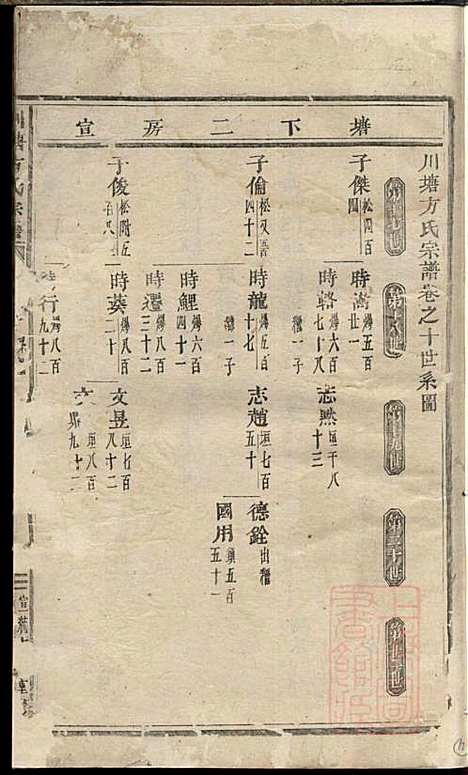 川塘方氏宗譜卷之十世系圖
塘下二房宣
第十七世
第十八世
第十九世
第二十世
第廿一世
子傑 松四百四
時嵩 爆五百廿一
時輅 爆六百七十八 繼一子
志然 垣千八十三
子倫 松又百四十二
時龍 爆六百十七 繼一子
志趙 垣七百五十
德銓 出繼
國用 鎮五百五十一
時鯉 爆六百四十一
時遷 爆八百三十二
子俊 松附五百八
時葵 爆八百二十
文昱 垣七百八十二
垣八百九十二
時行 爆八百九十二
川塘方氏宗譜